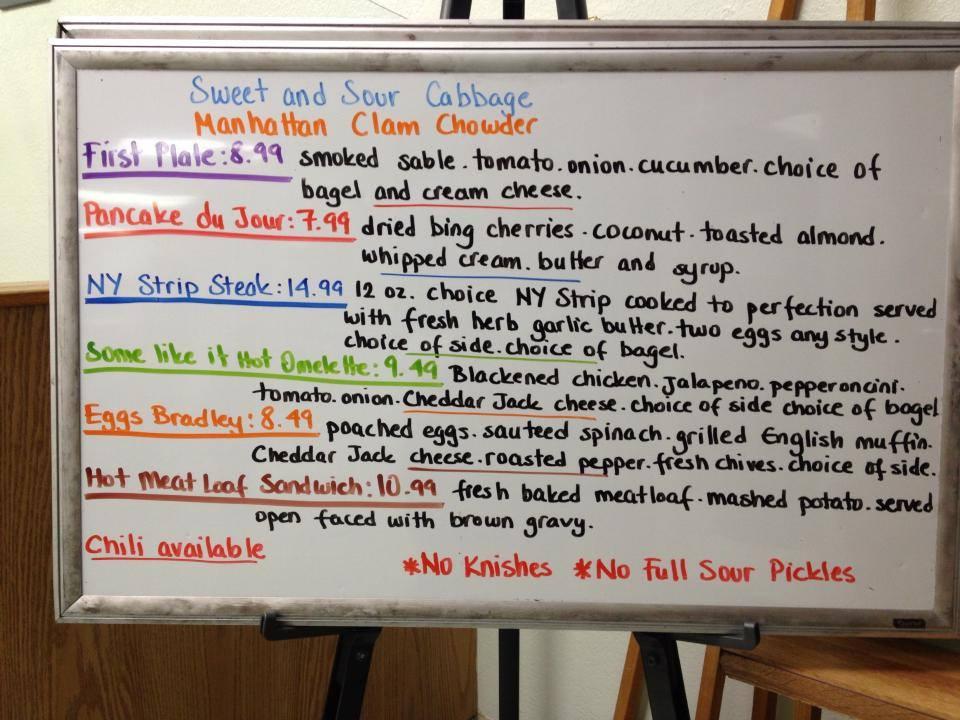 Sweet and Sour Cabbage
Manhattan Clam Chowder
First Plate: 8.99 smoked sable. tomato. onion. cucumber. choice of
bagel and cream cheese.
Pancake du Jour: 7.99 dried bing cherries. coconut. toasted almond.
whipped cream. butter and syrup.
NY Strip Steak: 14.99 12 oz. choice NY Strip cooked to perfection served
with fresh herb garlic butter. two eggs any style.
choice of side. choice of bagel.
Some like it Hot Omelette: 9.49 Blackened chicken. jalapeno. pepperoncini.
tomato. onion. Cheddar Jack cheese. choice of side choice of bagel
Eggs Bradley: 8.49 poached eggs. sauteed spinach. grilled English muffin.
Cheddar Jack cheese. roasted pepper. fresh chives. choice of side.
Hot Meat Loaf Sandwich: 10.99 fresh baked meatloaf. mashed potato. served
open faced with brown gravy.
Chili available
*No Knishes *No Full Sour Pickles